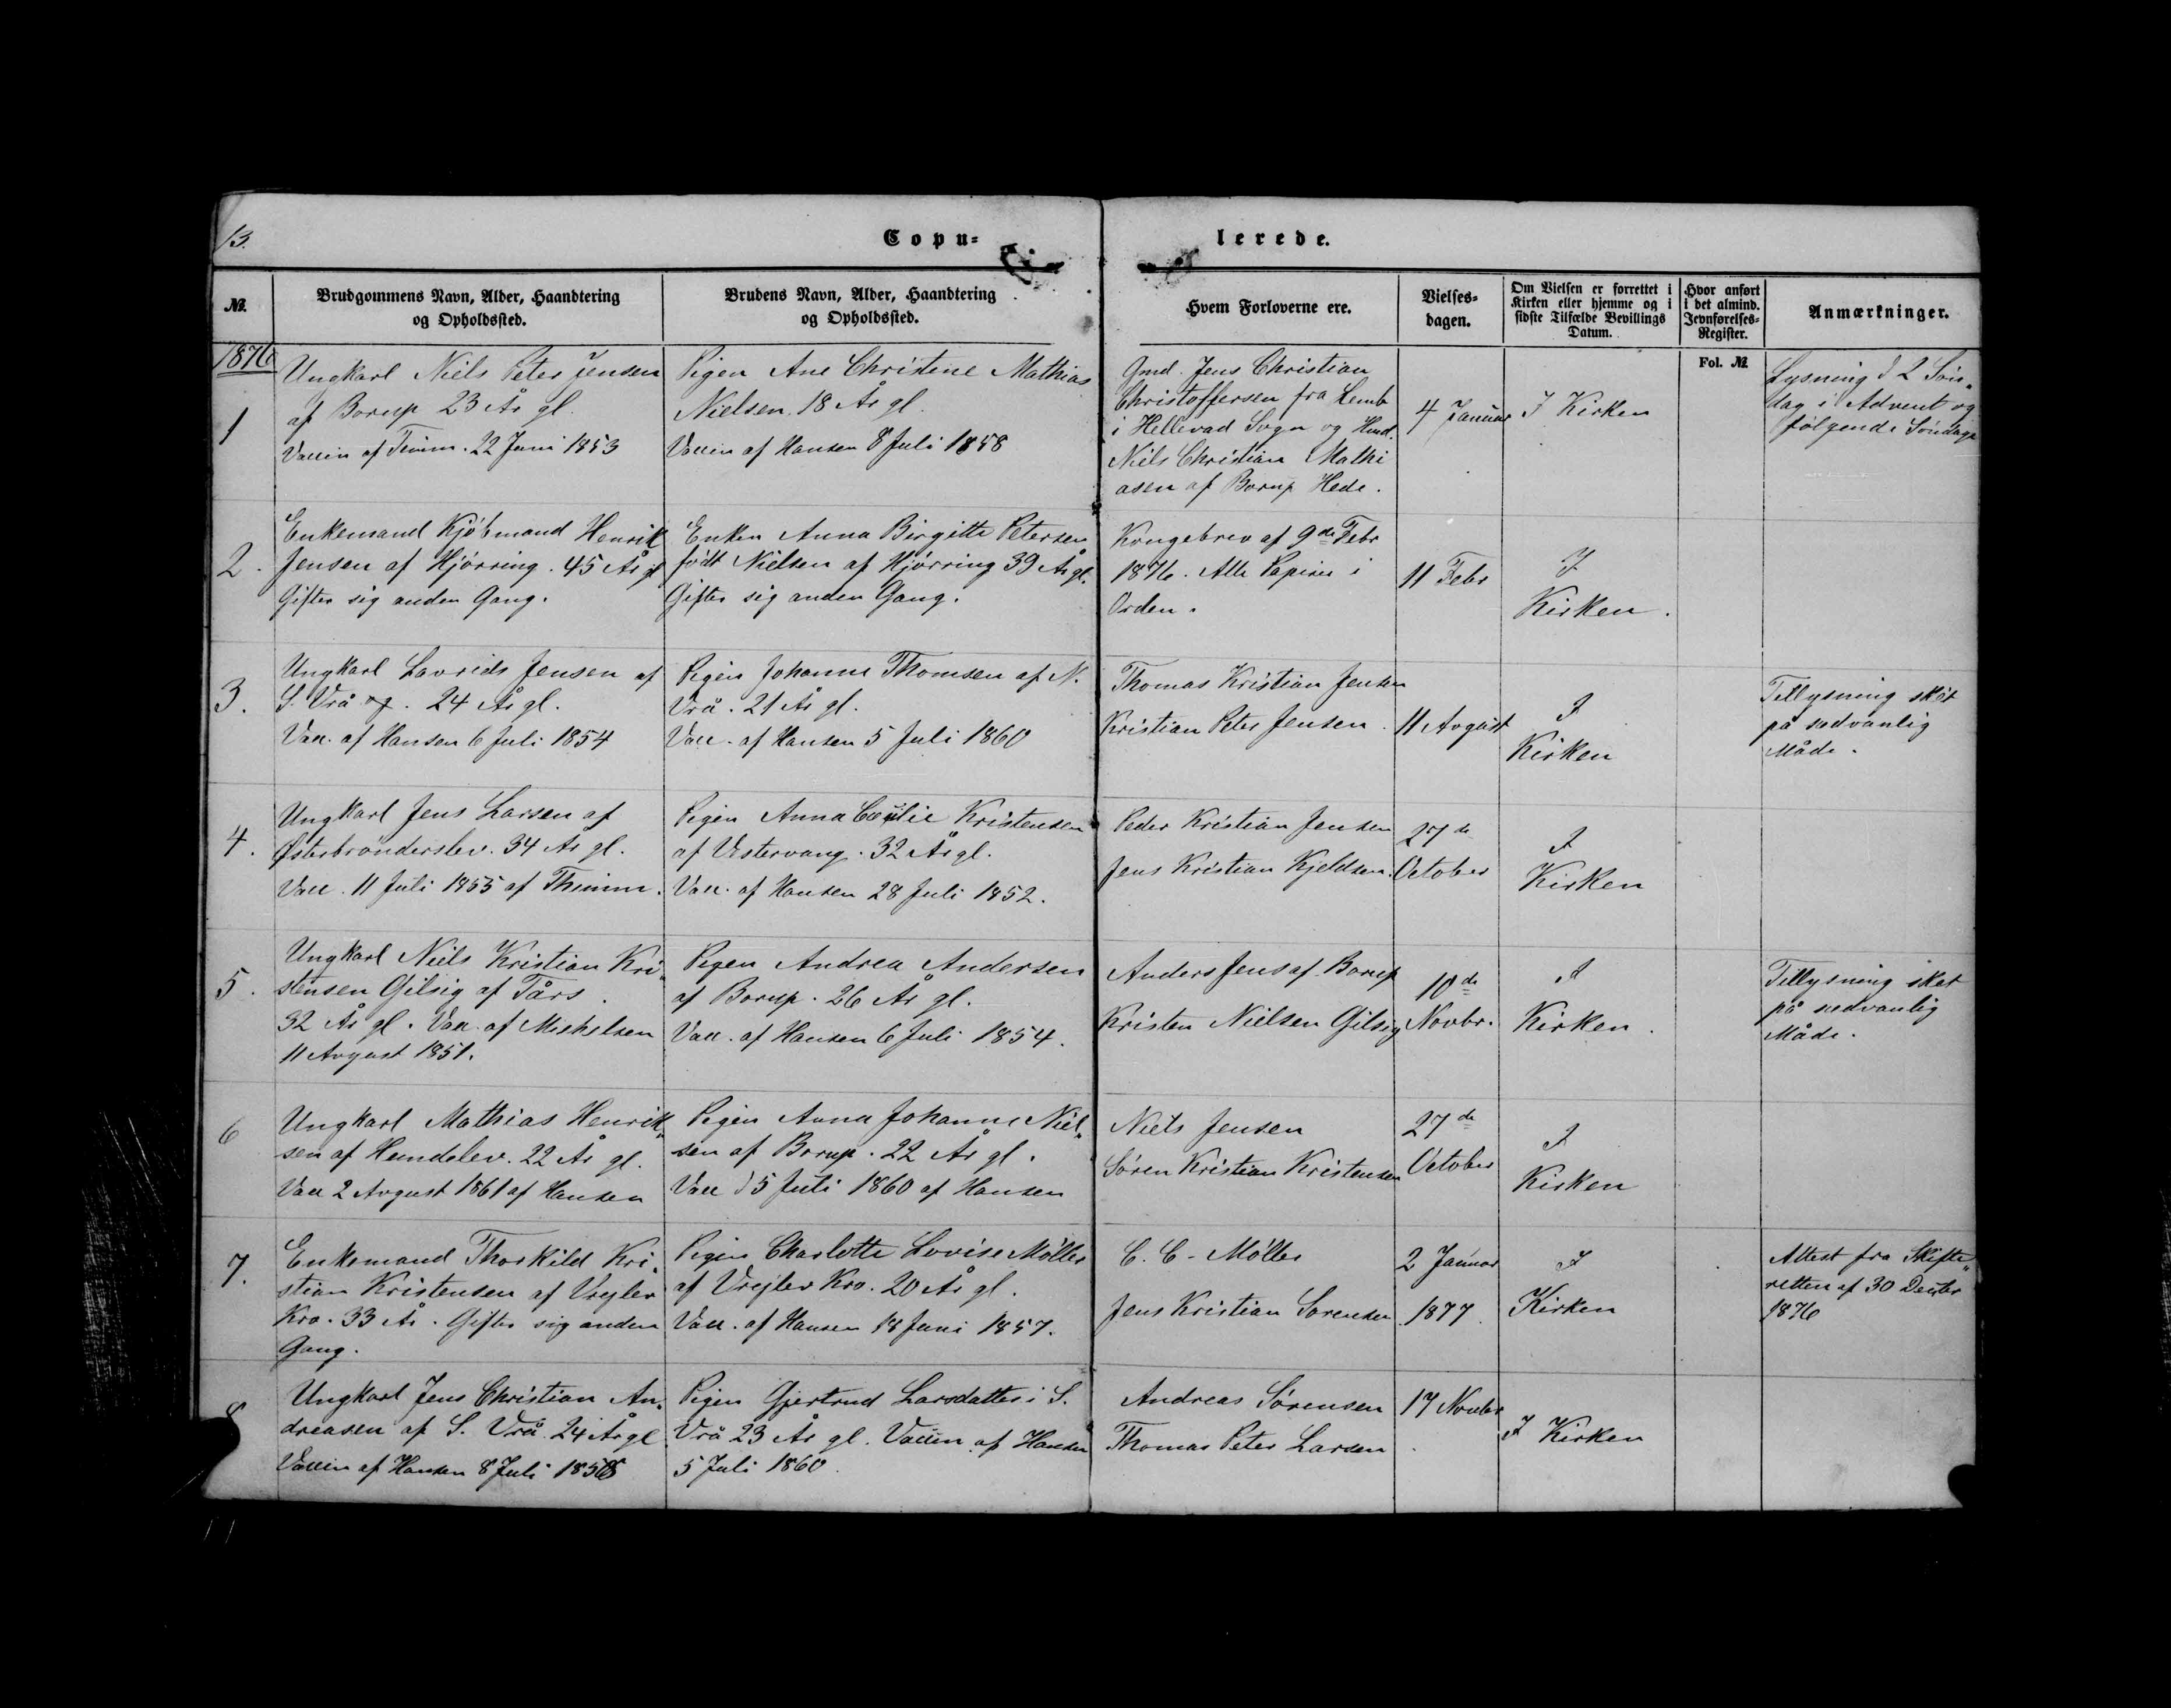 13.
Copu=
lerede.
№.
Brudgommens Navn, Alder, Haandtering
og Opholdssted.
Brudens Navn, Alder, Haandtering
og Opholdssted.
Hvem Forloverne ere.
Vielses-
dagen.
Om Vielsen er forrettet i
Kirken eller hjemme og i
sidste Tilfælde Bevillings
Datum.
Hvor anført
i det almind.
Jevnførelses-
Register.
Anmærkninger.
Fol. №
1876
1
Ungkarl Niels Peter Jensen
af Borup 23 År gl.
Vaccin af Timm. 22 Juni 1853
Pigen Ane Christine Mathias
Nielsen. 18 År gl.
Vaccin af Hansen 8 Juli 1858
Gmd. Jens Christian
Christoffersen fra Lemb
i Hellevad Sogn og Hmd.
Niels Christian Mathi
asen af Borup Hede.
4 Januar
I Kirken
Lysning d 2 Søn„
dag i Advent og
følgende Søndage
2.
Enkemand Kjøbmand Henrik
Jensen af Hjørring. 45 År gl
Gifter sig anden Gang.
Enken Anna Birgitte Petersen
født Nielsen af Hjørring 39 År gl.
Gifter sig anden Gang.
Kongebrev af 9de Febr
1876. Alle Papirer i
Orden.
11 Febr
I
Kirken.
3.
Ungkarl Lavrids Jensen af
S. Vrå. 24 År gl.
Vacc. af Hansen 6 Juli 1854
Pigen Johanne Thomsen af N.
Vrå. 21 År gl.
Vacc. af Hansen 5 Juli 1860
Thomas Kristian Jensen
Kristian Peter Jensen.
11 Avgust
I
Kirken
Tillysning sket
på sædvanlig
Måde.
4.
Ungkarl Jens Larsen af
Østerbrønderslev. 34 År gl.
Vacc. 11 Juli 1855 af Thimm.
Pigen Anna Cæcilie Kristensen
af Vestervang. 32 År gl.
Vacc. af Hansen 28 Juli 1852.
Peder Kristian Jensen
Jens Kristian Kjeldsen.
27de
October
I
Kirken
5.
Ungkarl Niels Kristian Kri„
stensen Gilsig af Tårs.
32 År gl. Vacc. af Mishelsen
11 Avgust 1851.
Pigen Andrea Andersen
af Borup. 26 År gl.
Vacc. af Hansen 6 Juli 1854.
Anders Jens af Borup
Kristen Nielsen Gilsig
10de
Novbr.
I
Kirken.
Tillysning sket
på sædvanlig
Måde.
6
Ungkarl Mathias Henrik„
sen af Hundelev. 22 År gl.
Vacc 2 Avgust 1861 af Hansen
Pigen Anna Johanne Niel„
sen af Borup. 22 År gl.
Vacc d 5 Juli 1860 af Hansen
Niels Jensen
Søren Kristian Kristensen
27de
October
I
Kirken
7.
Enkemand Thorkild Kri„
stian Kristensen af Vrejlev
Kro. 33 År. Gifter sig anden
Gang.
Pigen Charlotte Lovise Møller
af Vrejlev Kro. 20 År gl.
Vacc. af Hansen 18 Juni 1857.
C. C. Møller
Jens Kristian Sørensen
2 Januar
1877
I
Kirken
Attest fra Skifte„
retten af 30 Decbr
1876
8
Ungkarl Jens Christian An„
dreasen af S. Vrå. 24 År gl
Vaccin af Hansen 8 Juli 1858
Pigen Gjertrud Larsdatter i S.
Vrå 23 År gl. Vaccin af Hansen
5 Juli 1860.
Andreas Sørensen
Thomas Peter Larsen
17 Novbr
I Kirken